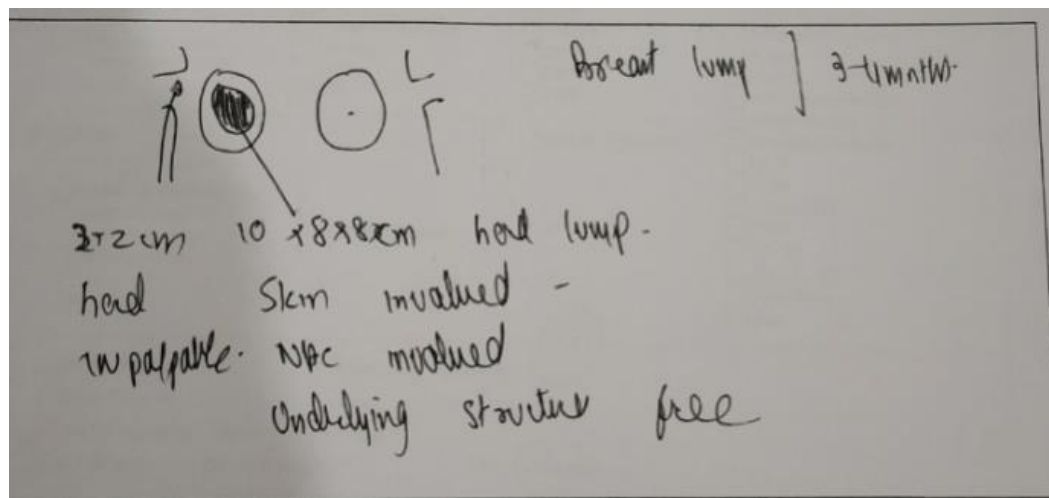 Breast lump ] 3-4 months.
L
3x2 cm 10 x8x8cm hard lump.
hard Skin involved -
LN palpable. NAC involved
Underlying structures free